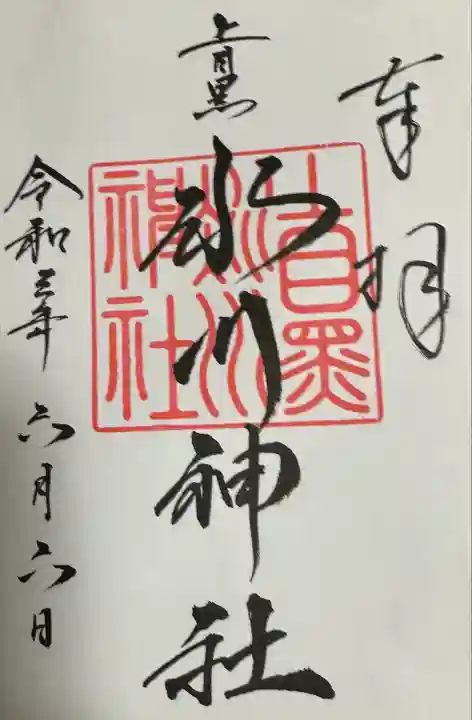 奉拝
上目黒
氷川神社
上目黒氷川神社
令和三年六月六日